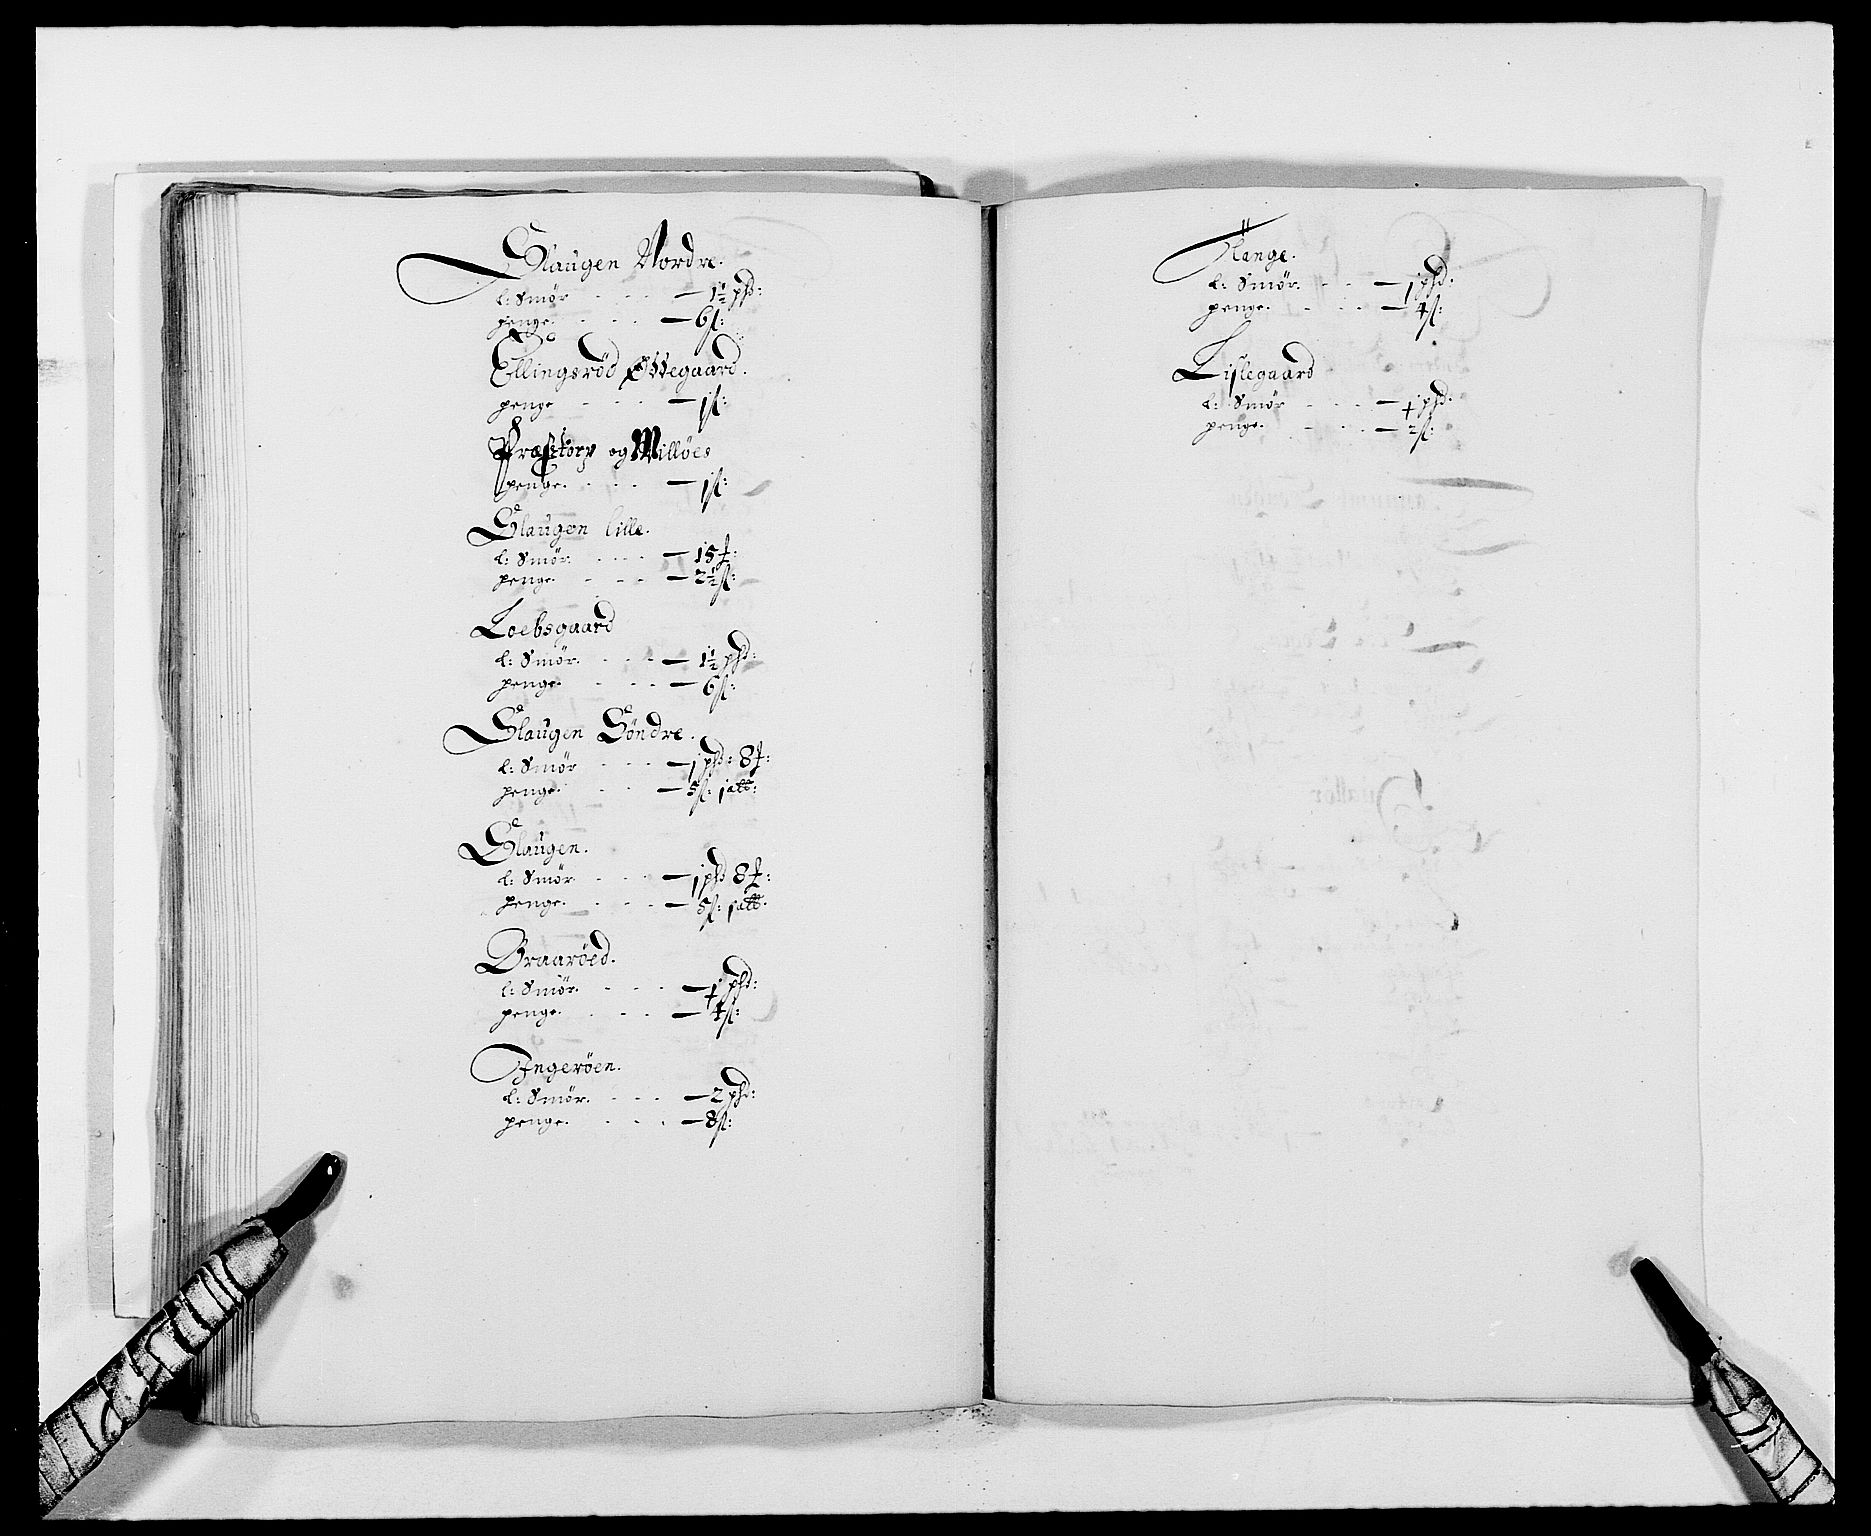 Slaugen Nordre.
l: Smör. - - - — 1½ phd:
penge. - - - — 6ſ:
Ellingsröd Ødegaard.
penge - - - — 1ſ:
Præstorp og Millöes
penge. - - - — 1ſ:
Slaugen lille.
l: Smör. - - - — 15
penge. - - - — 2½ſ:
Loebsgaard
l: Smör. - - - — 1½ phd:
penge. - - - — 6ſ:
Slaugen Söndre.
l: Smör - - - — 1 phd: 8
penge. - - - — 5ſ: jalb:
Slaugen.
l: Smör. - - - — 1 phd 8
penge. - - - — 5ſ: jalb:
Braaröed.
l: Smör. - - - — 1 phd:
penge. - - - — 4ſ:
Ingeröen.
l: Smör. - - - — 2 phd:
penge. - - - — 8ſ:
Hange.
l: Smör. - - - — 1 phd:
penge. - - - — 4ſ:
Lislegaard
l: Smör - - - — phd:
penge. - - - — 2ſ: